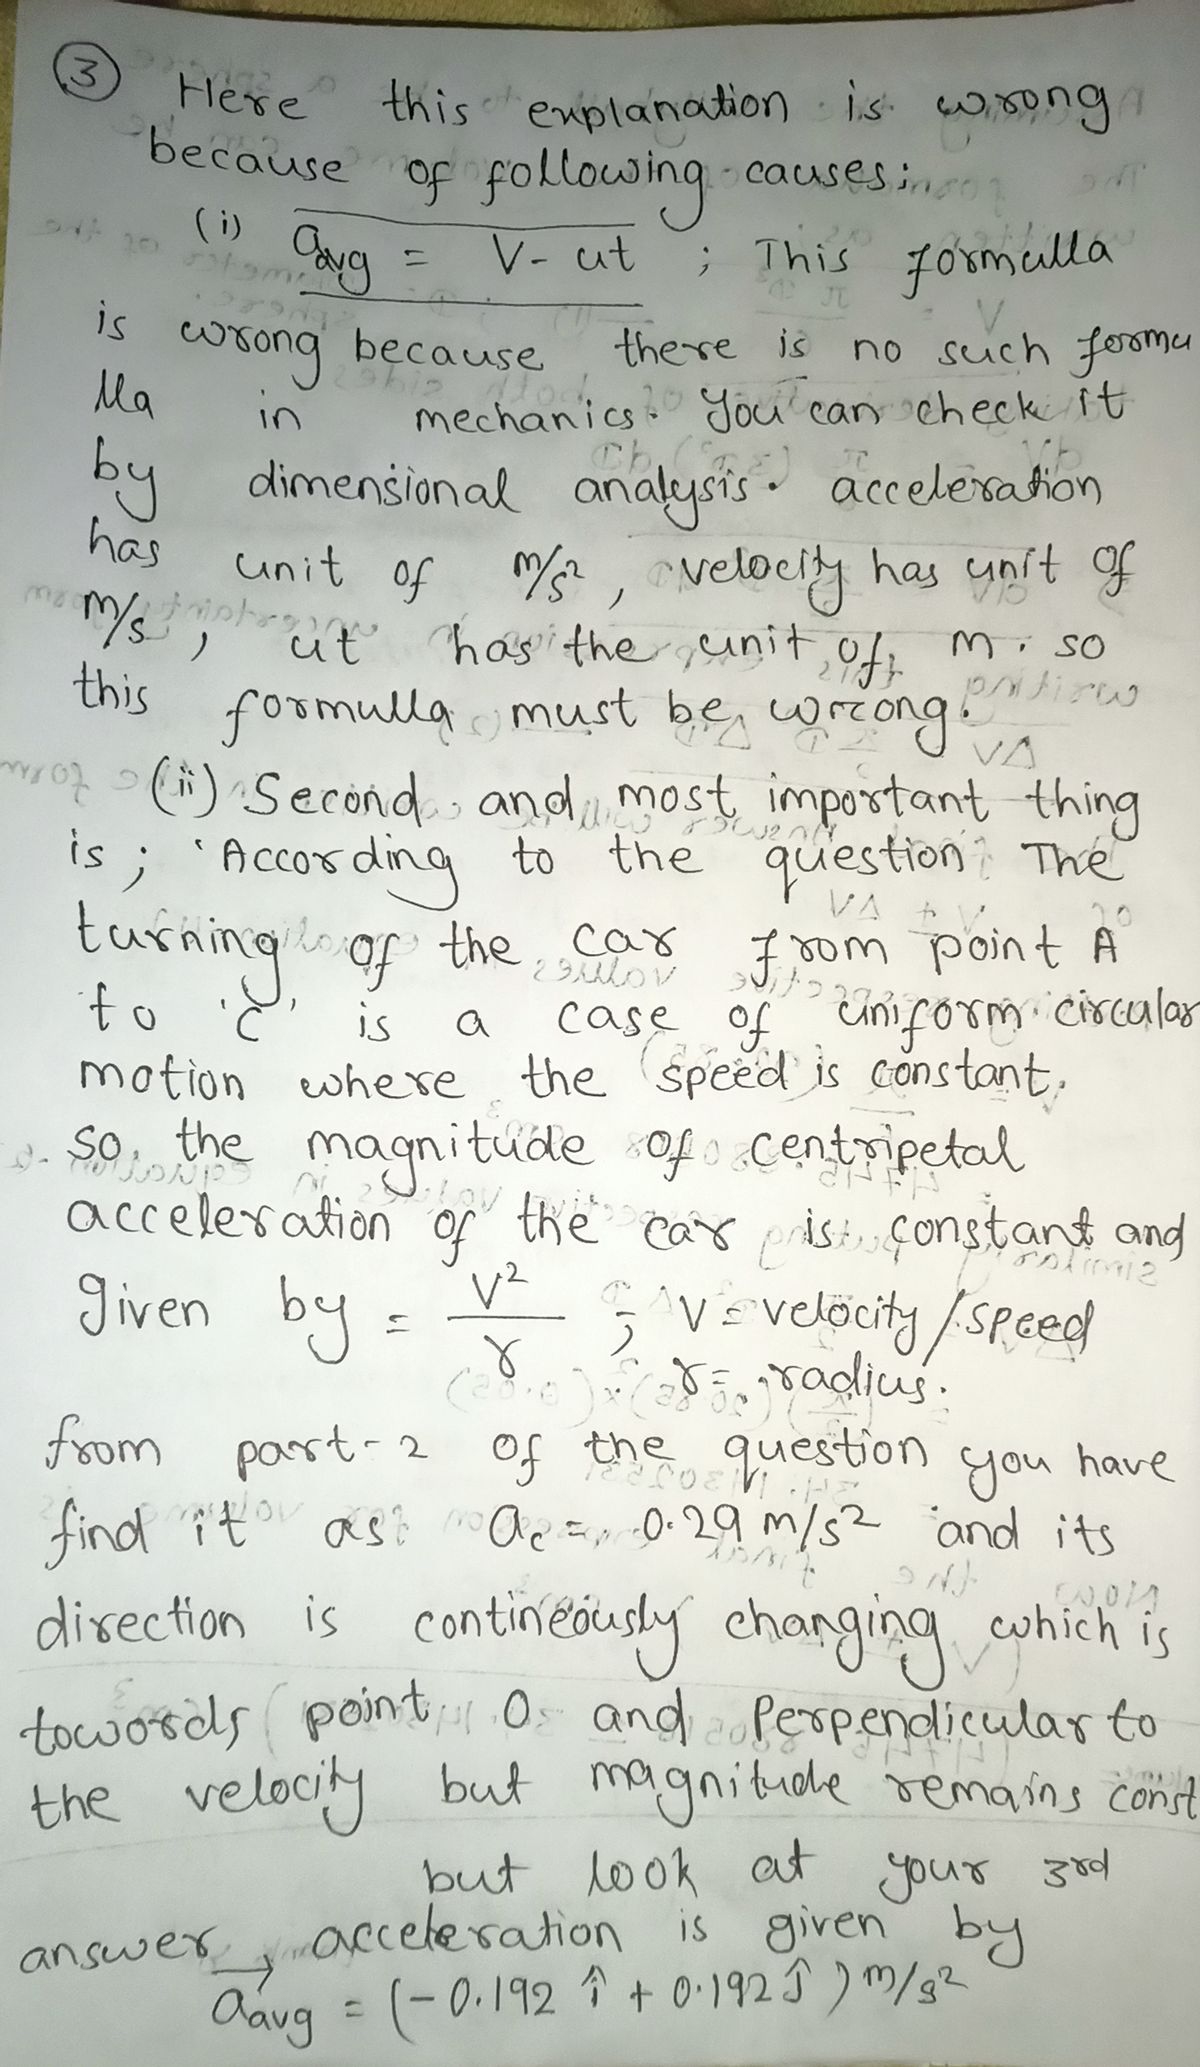 3 Here this explanation is wrong
because of following causes:
(i) aavg = V - ut ; This formulla
is wrong because there is no such formu
lla in mechanics. You can check it
by dimensional analysis. acceleration
has unit of m/s², velocity has unit of
m/s, ut has the unit of m. so
this formulla must be wrong.
(ii) Second and most important thing
is; 'According to the question The
turning of the car from point A
to 'C' is a case of uniform circular
motion where the speed is constant.
so, the magnitude of centripetal
acceleration of the car is constant and
given by = V²/r ; V = velocity/speed
r = radius.
from part-2 of the question you have
find it as ac = 0.29 m/s² and its
direction is contineously changing which is
towords point O and Perpendicular to
the velocity but magnitude remains const
but look at your 3rd
answer, acceleration is given by
a⃗avg = (-0.192 î + 0.192 ĵ) m/s²